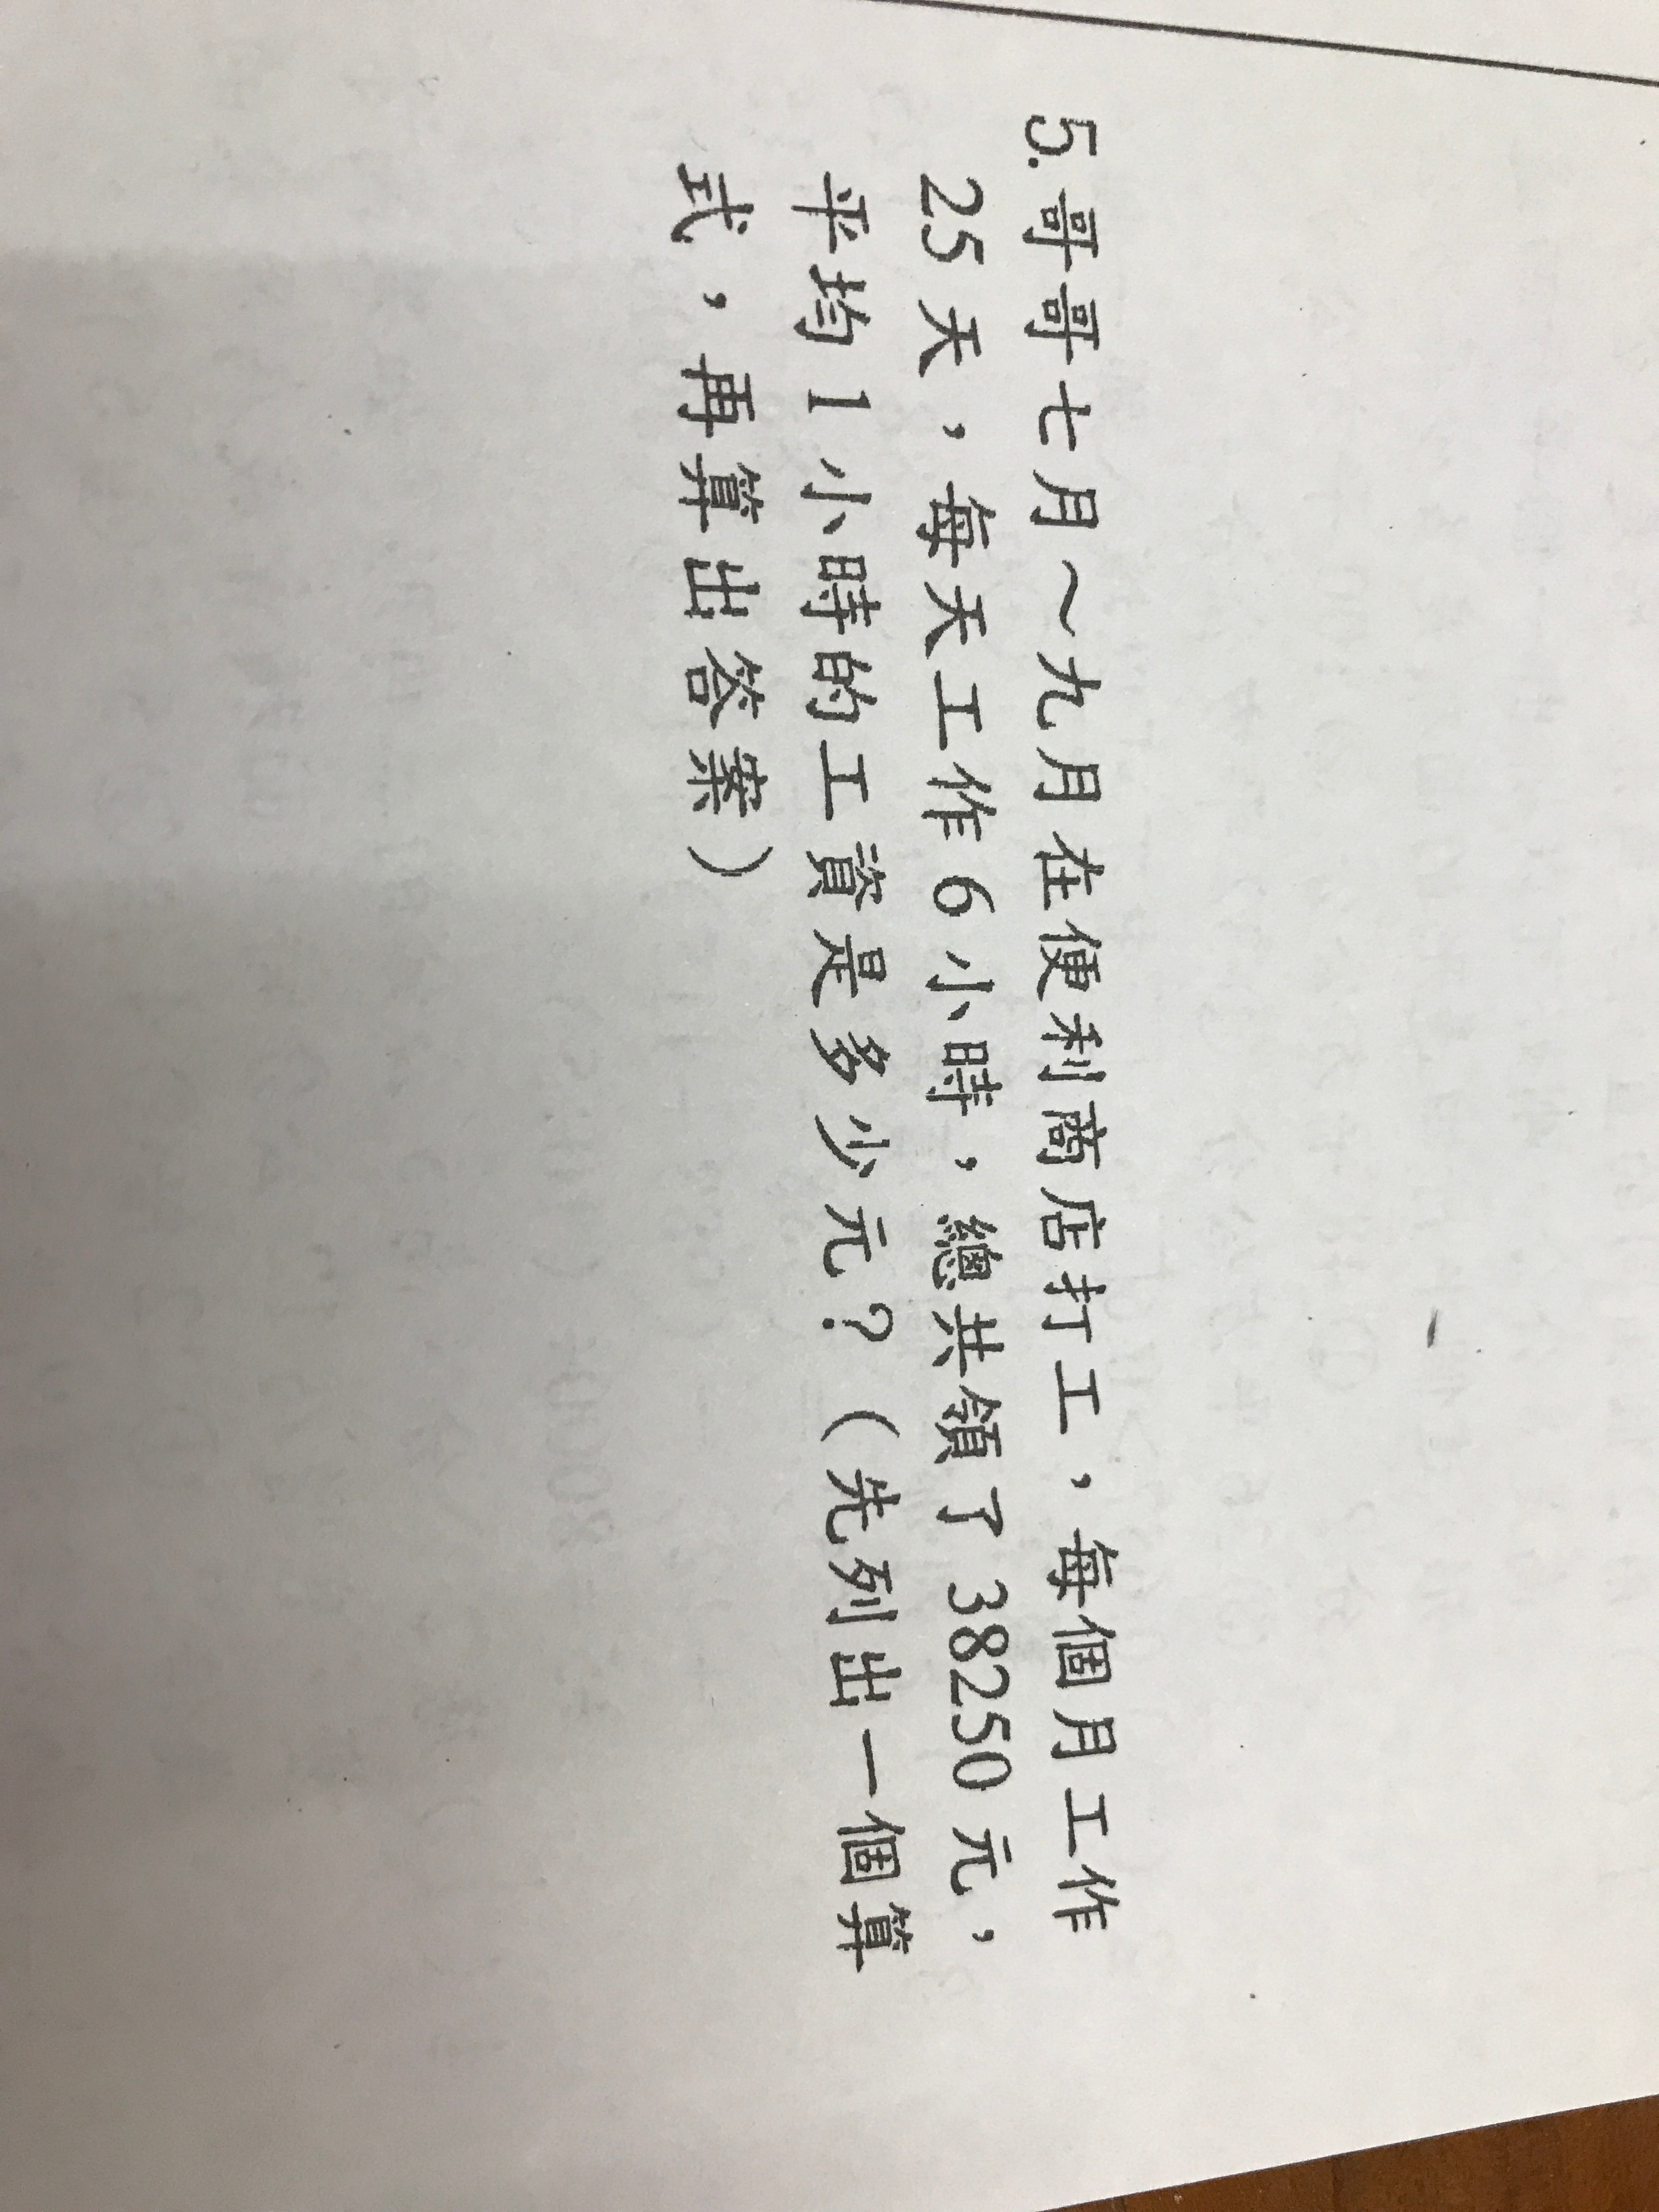 5.哥哥七月～九月在便利商店打工，每個月工作
25天，每天工作6小時，總共領了38250元，
平均1小時的工資是多少元？（先列出一個算
式，再算出答案）